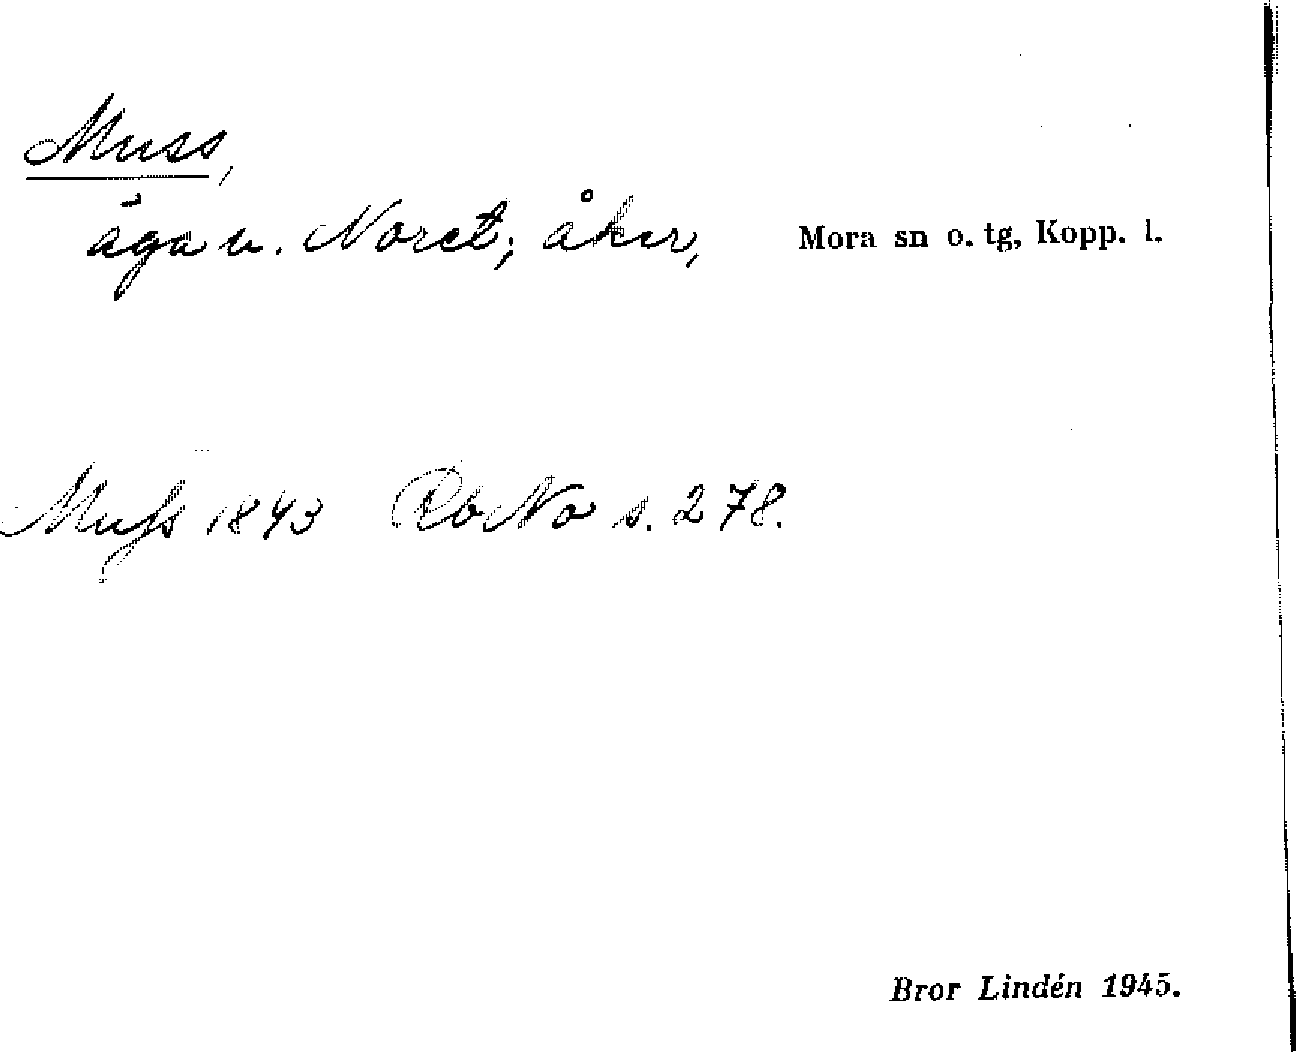 Muss,
äga u. Noret; åker, Mora sn o. tg, Kopp. l.
Muss 1843 RoNo s. 278.
Bror Lindén 1945.